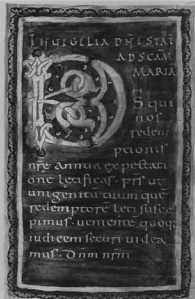 IN VIGILIA DNI STAT
AD SCAM
MARIA
DS qui
nos
redem
ptionis
nre annua expectati
one letificas · prs ut
unigenitu tuum que
redemptore leti susce
pimus · veniente quoq;
iudicem securi videa
mus · Dnm nrm